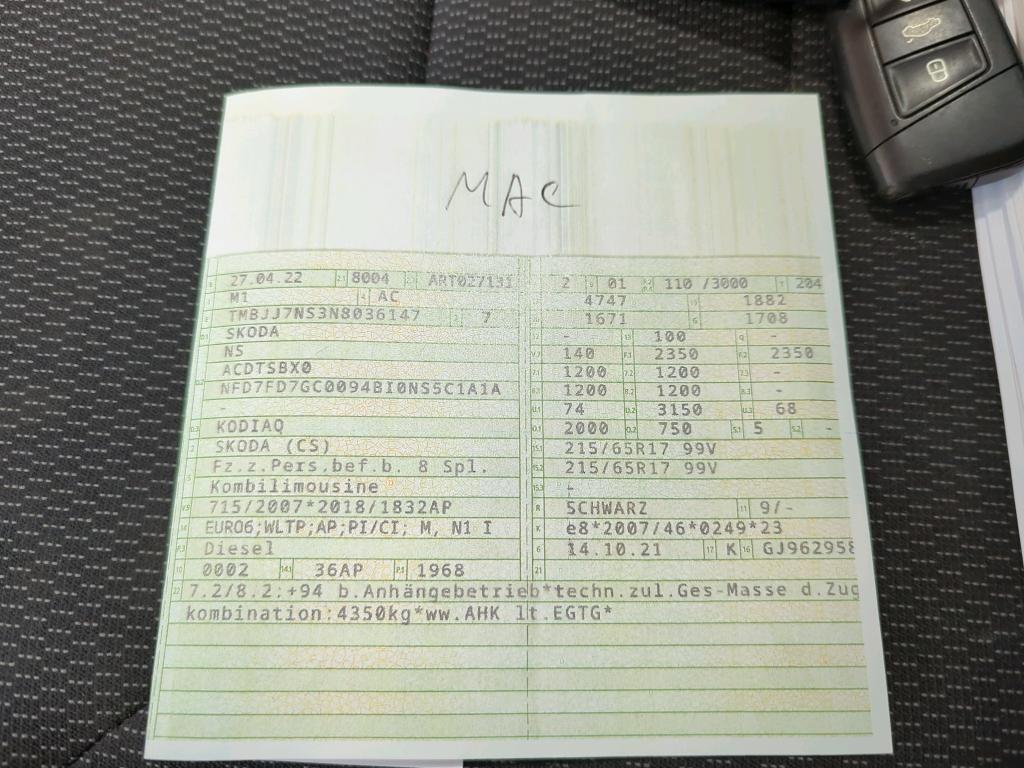 MAC
27.04.22 8004 ART027131 2 01 110 /3000 204
M1 AC 4747 1882
TMBJJ7NS3N8036147 7 1671 1708
SKODA - 100 -
NS 140 2350 2350
ACDTSBX0 1200 1200 -
NFD7FD7GC0094BI0NS5C1A1A 1200 1200 -
- 74 3150 68
KODIAQ 2000 750 5 -
SKODA (CS) 215/65R17 99V
Fz.z.Pers.bef.b. 8 Spl. 215/65R17 99V
Kombilimousine -
715/2007*2018/1832AP SCHWARZ 9/-
EURO6;WLTP;AP;PI/CI; M, N1 I e8*2007/46*0249*23
Diesel 14.10.21 K GJ962958
0002 36AP 1968
7.2/8.2:+94 b.Anhängebetrieb*techn.zul.Ges-Masse d.Zug
kombination:4350kg*ww.AHK lt.EGTG*